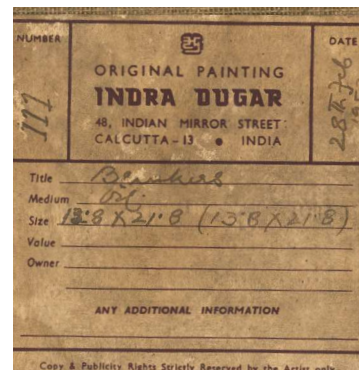 NUMBER
DATE
ORIGINAL PAINTING
INDRA DUGAR
48, INDIAN MIRROR STREET
CALCUTTA-13 • INDIA
28th Feb
Title
Medium Oil
Size 13·8 X 21·8 (13·8 X 21·8)
Value
Owner
ANY ADDITIONAL INFORMATION
Copy & Publicity Rights Strictly Reserved by the Artist only